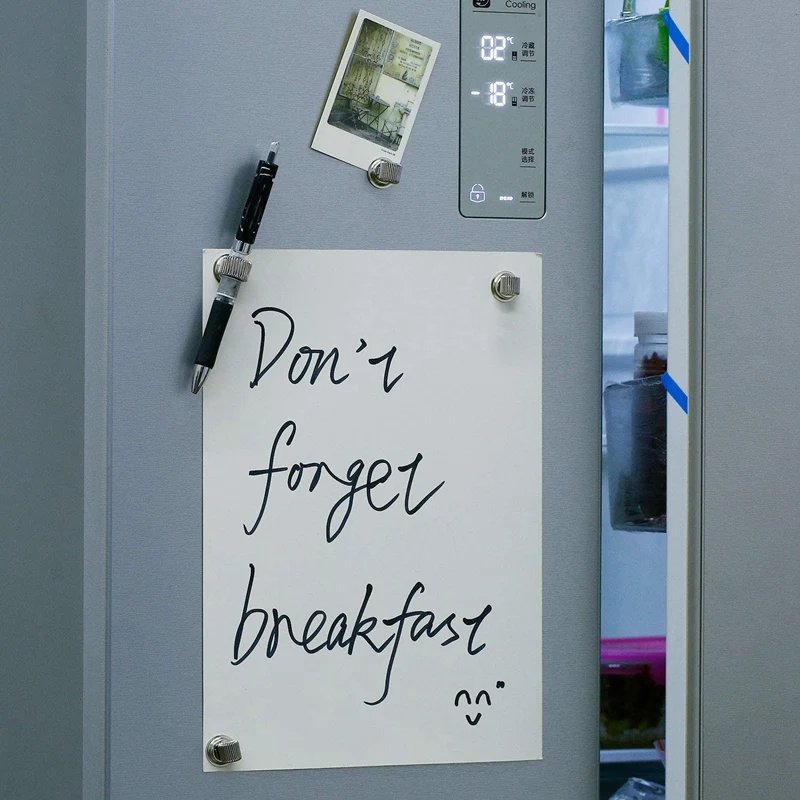 Cooling
02°C 冷藏
调节
-18°C 冷冻
调节
模式
选择
解锁
Don't
forget
breakfast